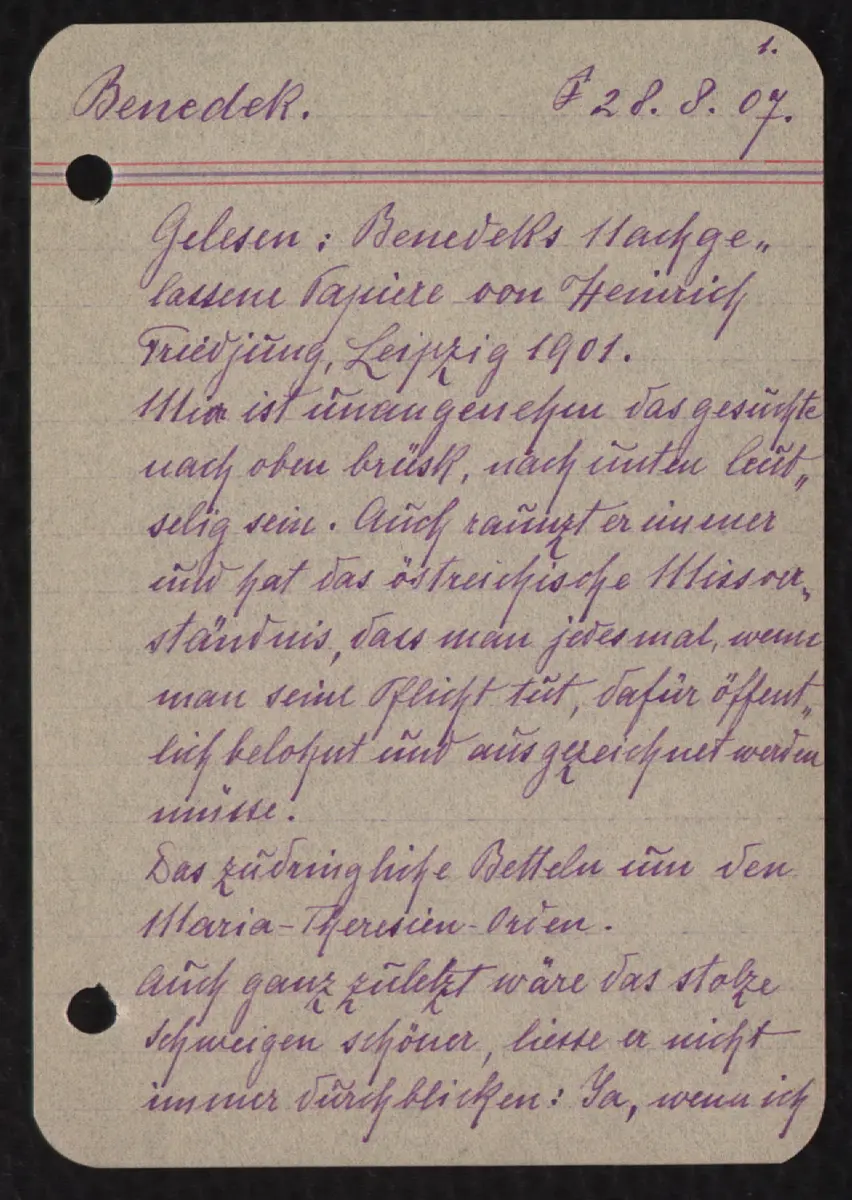 1.
Benedek. F 28. 8. 07.
Gelesen: Benedeks Nachge„
lassene Papiere von Heinrich
Friedjung, Leipzig 1901.
Mir ist unangenehm das gesuchte
nach oben brüsk, nach unten leut„
selig sein. Auch raunzt er immer
und hat das östreichische Missver„
ständnis, dass man jedesmal, wenn
man seine Pflicht tut, dafür öffent„
lich belohnt und ausgezeichnet werden
müsse.
Das zudringliche Betteln um den
Maria-Theresien-Orden.
Auch ganz zuletzt wäre das stolze
Schweigen schöner, liesse er nicht
immer durchblicken: Ja, wenn ich